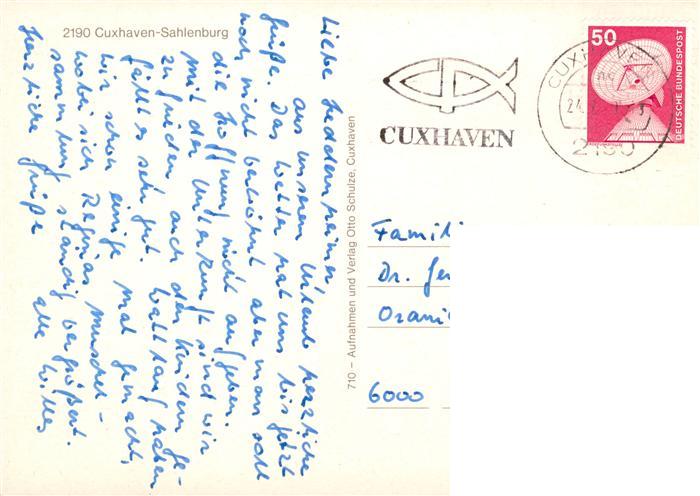 2190 Cuxhaven-Sahlenburg
Liebe Heddernheimer,
aus unserem Urlaub herzliche
Grüße. Das Wetter hat uns bis jetzt
noch nicht belohnt aber man soll
die Hoffnung nicht aufgeben.
Mit der Unterkunft sind wir
zufrieden auch den Kindern ge-
fällt es sehr gut. Wattlaufhaben
wir schon einige mal gemacht,
wobei sich Reginas Muschel-
sammlung ständig vergrößert.
Herzliche Grüße
alle
710 – Aufnahmen und Verlag Otto Schulze, Cuxhaven
CUXHAVEN
CUXHAVEN
24.
2190
50
DEUTSCHE BUNDESPOST
Famili
Dr. Ger
Orani
6000